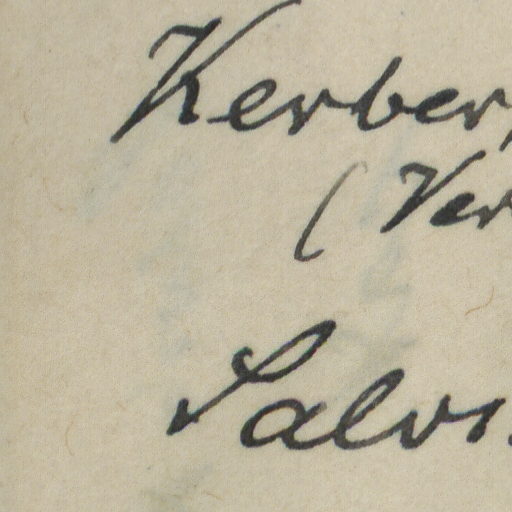 Kerber,
( Ver
Salvi